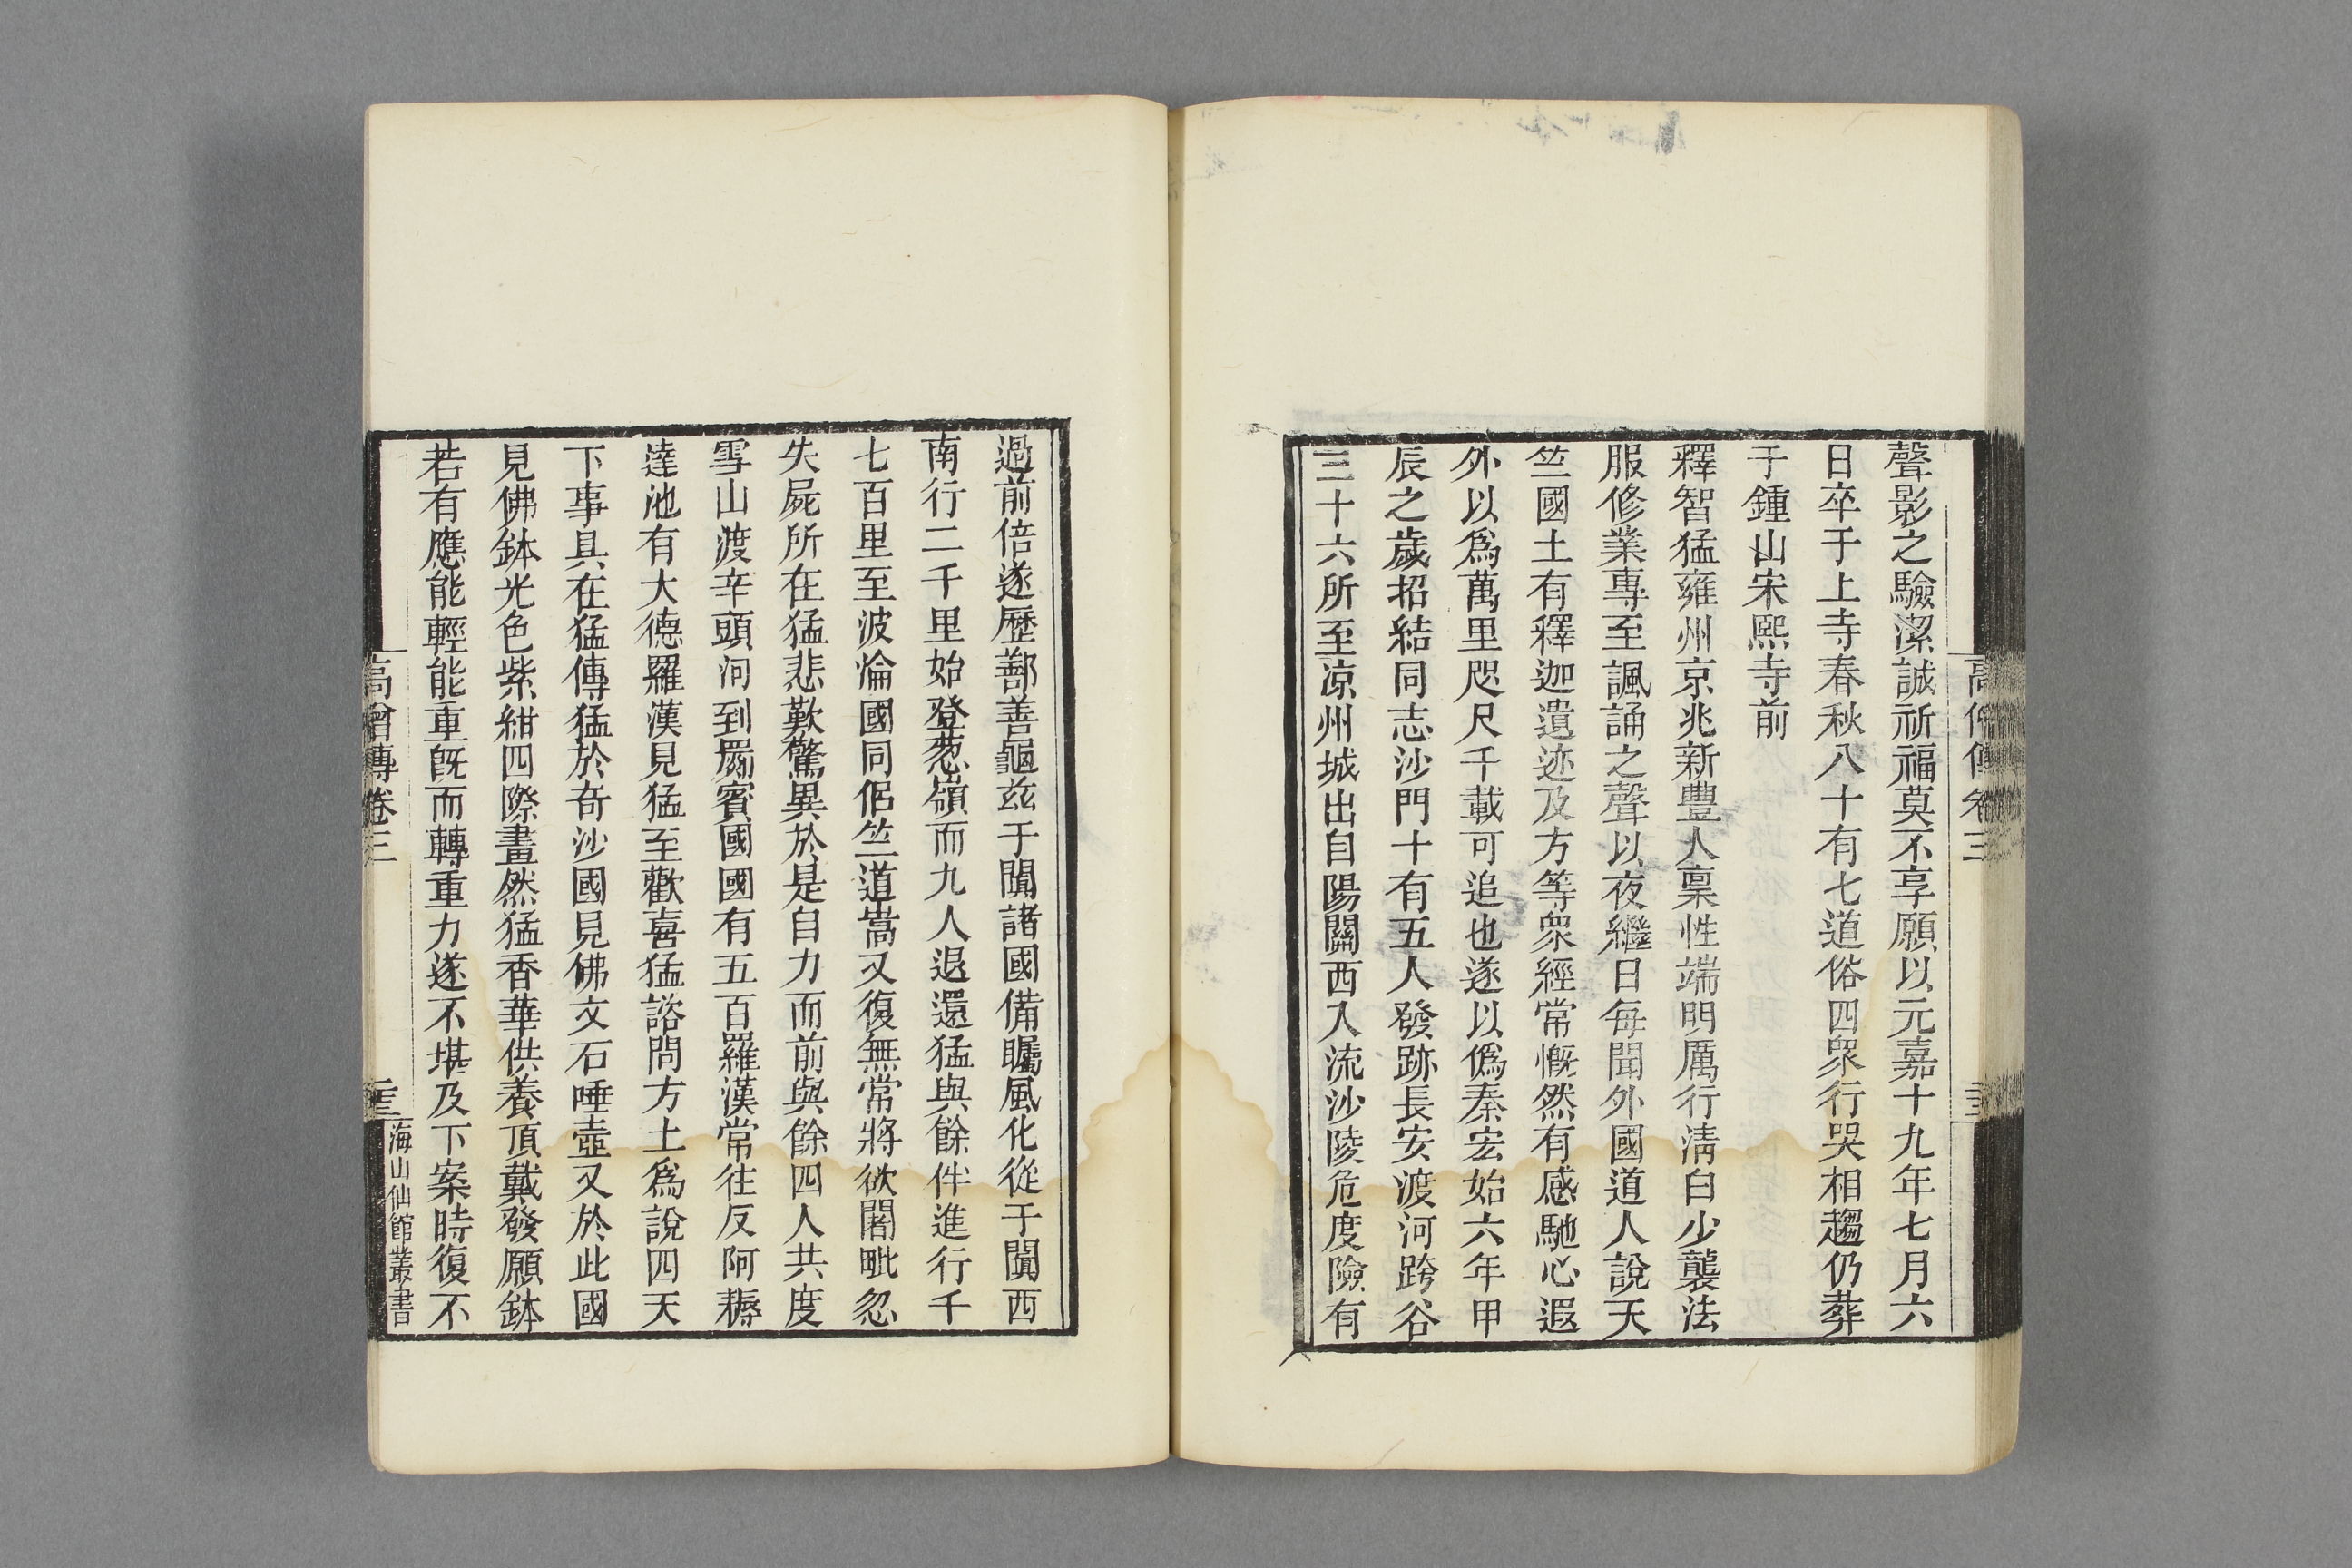 聲影之驗潔誠祈福莫不享願以元嘉十九年七月六
日卒于上寺春秋八十有七道俗四衆行哭相趨仍葬
于鍾山宋熙寺前
釋智猛雍州京兆新豐人稟性端明厲行清白少襲法
服修業專至諷誦之聲以夜繼日每聞外國道人說天
竺國土有釋迦遺迹及方等衆經常慨然有感馳心遐
外以爲萬里咫尺千載可追也遂以僞秦宏始六年甲
辰之歲招結同志沙門十有五人發跡長安渡河跨谷
三十六所至涼州城出自陽關西入流沙陵危度險有
過前倍遂歷鄯善龜玆于闐諸國備矚風化從于闐西
南行二千里始登葱嶺而九人退還猛與餘伴進行千
七百里至波淪國同侶竺道嵩又復無常將欲闍毗忽
失屍所在猛悲歎驚異於是自力而前與餘四人共度
雪山渡辛頭河到罽賓國國有五百羅漢常往反阿耨
達池有大德羅漢見猛至歡喜猛諮問方土爲說四天
下事具在猛傳猛於奇沙國見佛文石唾壺又於此國
見佛鉢光色紫紺四際畫然猛香華供養頂戴發願鉢
若有應能輕能重既而轉重力遂不堪及下案時復不
高僧傳卷三
海山仙館叢書